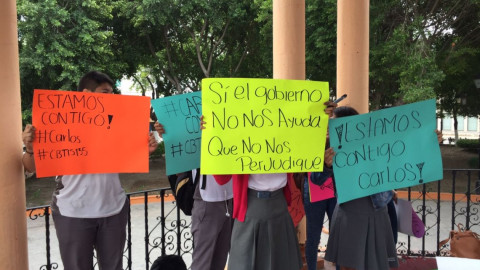 ESTAMOS
CONTIGO!
#Carlos
#CBTIS
#C
#CBT
Sí el gobierno
No Nos Ayuda
Que No Nos
Perjudique
¡Estamos
Contigo
Carlos!